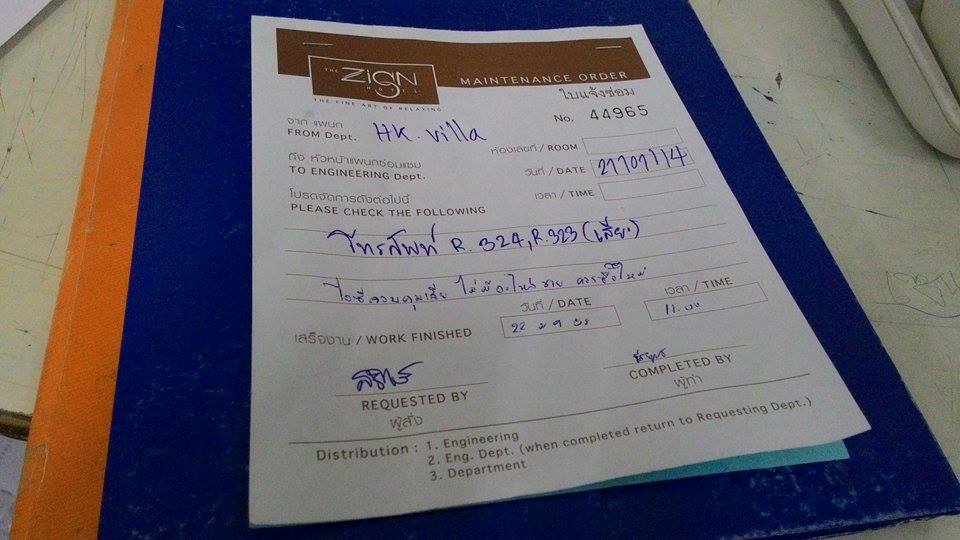 THE ZIGN HOTEL
THE FINE ART OF RELAXING
MAINTENANCE ORDER
ใบแจ้งซ่อม
No. 44965
จาก แผนก
FROM Dept. HK. Villa
ห้องเลขที่ / ROOM
ถึง หัวหน้าแผนกซ่อมแซม
TO ENGINEERING Dept.
วันที่ / DATE 21/01/14
โปรดจัดการดังต่อไปนี้
PLEASE CHECK THE FOLLOWING
เวลา / TIME
โทรสัพท์ R. 324, R.323 (เสีย)
ไอซีควบคุมเสีย ไม่มีอะไหล่ขาย ควรซื้อใหม่
เสร็จงาน / WORK FINISHED
วันที่ / DATE
22
เวลา / TIME
REQUESTED BY
ผู้สั่ง
COMPLETED BY
ผู้ทำ
Distribution : 1. Engineering
2. Eng. Dept. (when completed return to Requesting Dept.)
3. Department